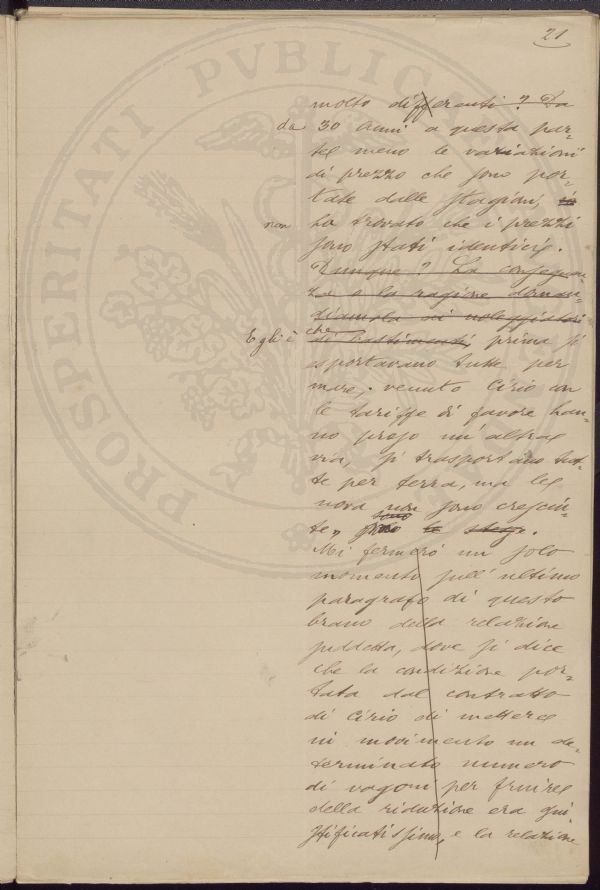 21
molto differenti? Da
da 30 anni a questa par=
te meno le variazioni
di prezzo che sono por=
tate dalle stagioni,
non ha trovato che i prezzi
sono stati identici.
Dunque? La conseguen=
za e la ragione doman=
diamola ai noleggiatori
Egli è che
di bastimenti, prima si
esportavano tutte per
mare; venuto Cirio con
le tariffe di favore han=
no preso un'altra
via, si trasportano tut=
te per terra, ma le
uova non sono cresciu=
te, sono le stesse.
Mi fermerò un solo
momento sull'ultimo
paragrafo di questo
brano della relazione
suddetta, dove si dice
che la condizione por=
tata dal contratto
di Cirio di mettere
in movimento un de=
terminato numero
di vagoni per fruire
della riduzione era giu=
stificatissima, e la relazione
PROSPERITATI PVBLICAE